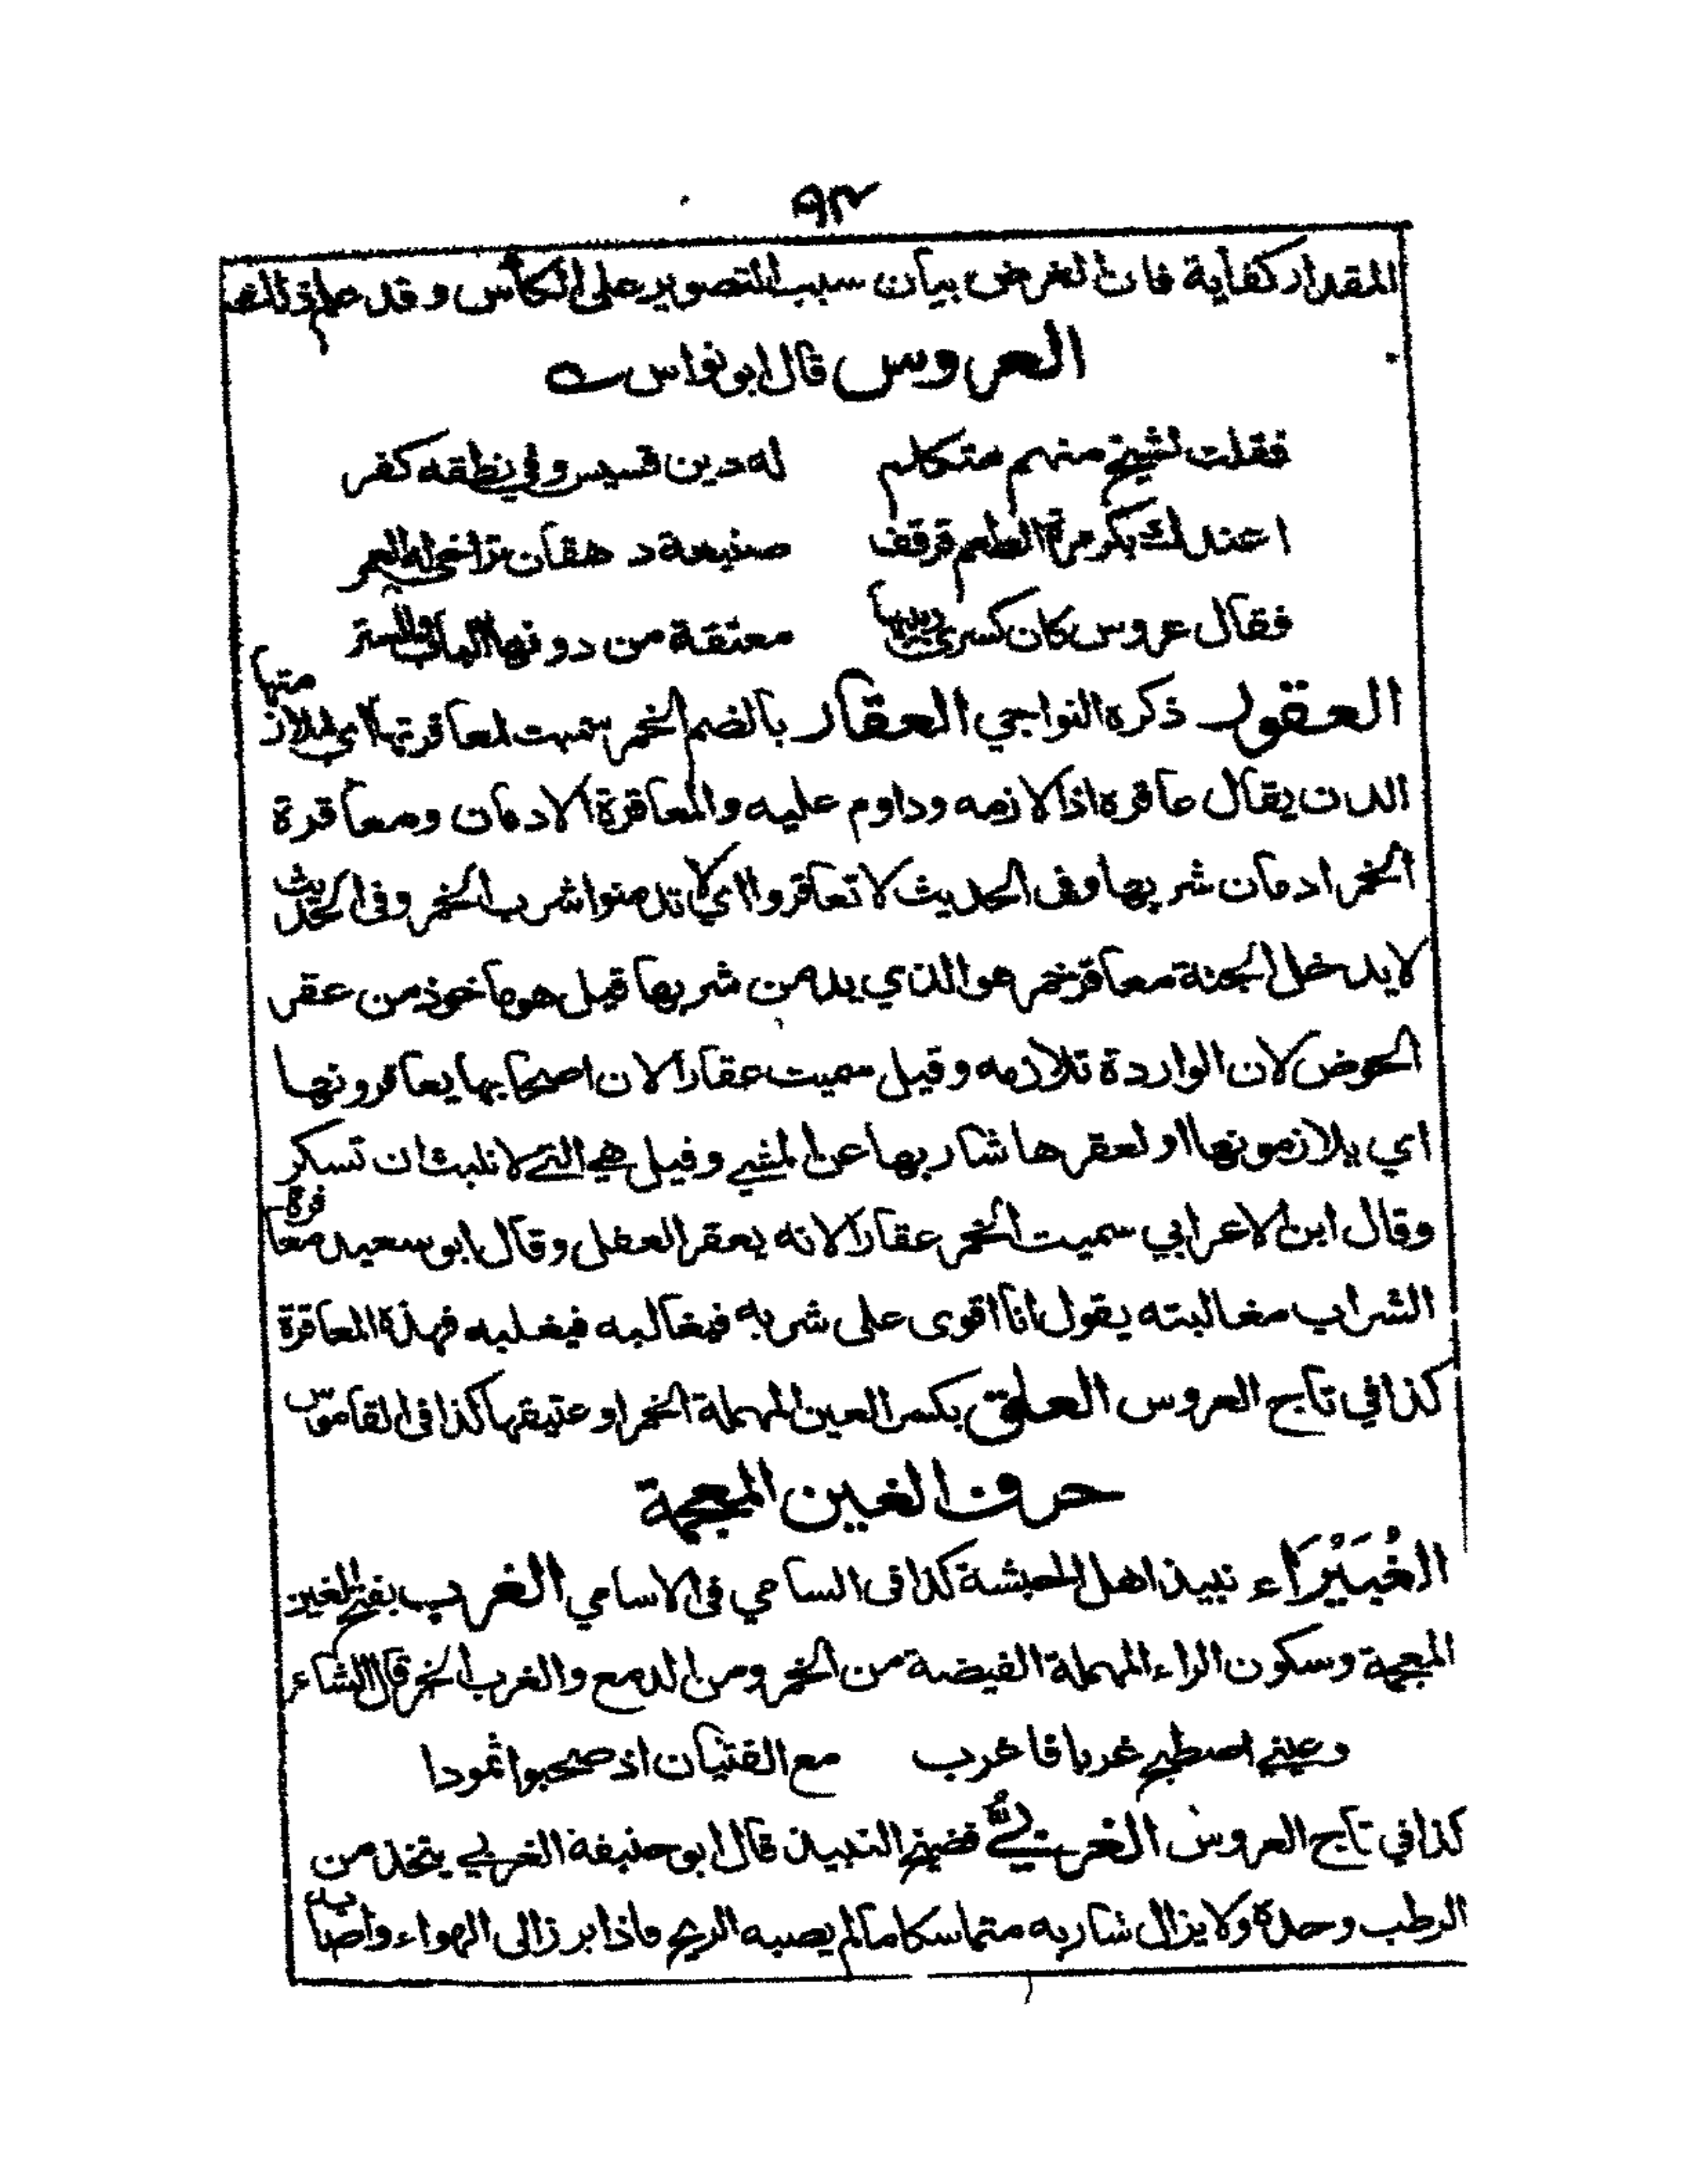 ٩٣
المقدار كفاية فان الغرض بيان سبب التصوير على الكأس وقد علم
العروس قال ابو نواس
فقلت لشيخ منهم متكلم له دين قسيس وفي نطقه كفر
اعندك بكر مرة الطعم قرقف صنيعة دهقان تراخى له العمر
فقال عروس كان كسرى ربيبها معتقة من دونها الباب والستر
العقور ذكره النواجي العقار بالضم الخمر سميت لمعاقرتها اي لملازمتها
الدن يقال عاقره اذا لازمه وداوم عليه والمعاقرة الادمان ومعاقرة
الخمر ادمان شربها وفى الحديث لا تعاقروا اي لا تدمنوا شرب الخمر وفى الحديث
لا يدخل الجنة معاقر خمر هو الذي يدمن شربها قيل هو ماخوذ من عقر
الحوض لان الواردة تلازمه وقيل سميت عقارا لان اصحابها يعاقرونها
اي يلازمونها او لعقرها شاربها عن المشي وقيل هي التي لا تلبث ان تسكر
وقال ابن الاعرابي سميت الخمر عقارا لانه يعقر العقل وقال ابو سعيد معاقرة
الشراب مغالبته يقول انا اقوى على شربه فيغالبه فيغلبه فهذه المعاقرة
كذا في تاج العروس العلق بكسر العين المهملة الخمر او عتيقها كذا فى القاموس
حرف الغين المعجمة
الغُبَيْرَاء نبيذ اهل الحبشة كذا فى السامي فى الاسامي الغرب بفتح الغين
المعجمة وسكون الراء المهملة الفيضة من الخمر ومن الدمع والغرب الخمر قال الشاعر
دعيني اصطبح غربا فاغرب مع الفتيان اذ صحبوا ثمودا
كذا في تاج العروس الغربي فضيخ النبيذ قال ابو حنيفة الغربي يتخذ من
الرطب وحده ولا يزال شاربه متماسكا ما لم يصبه الريح فاذا برز الى الهواء واصابه